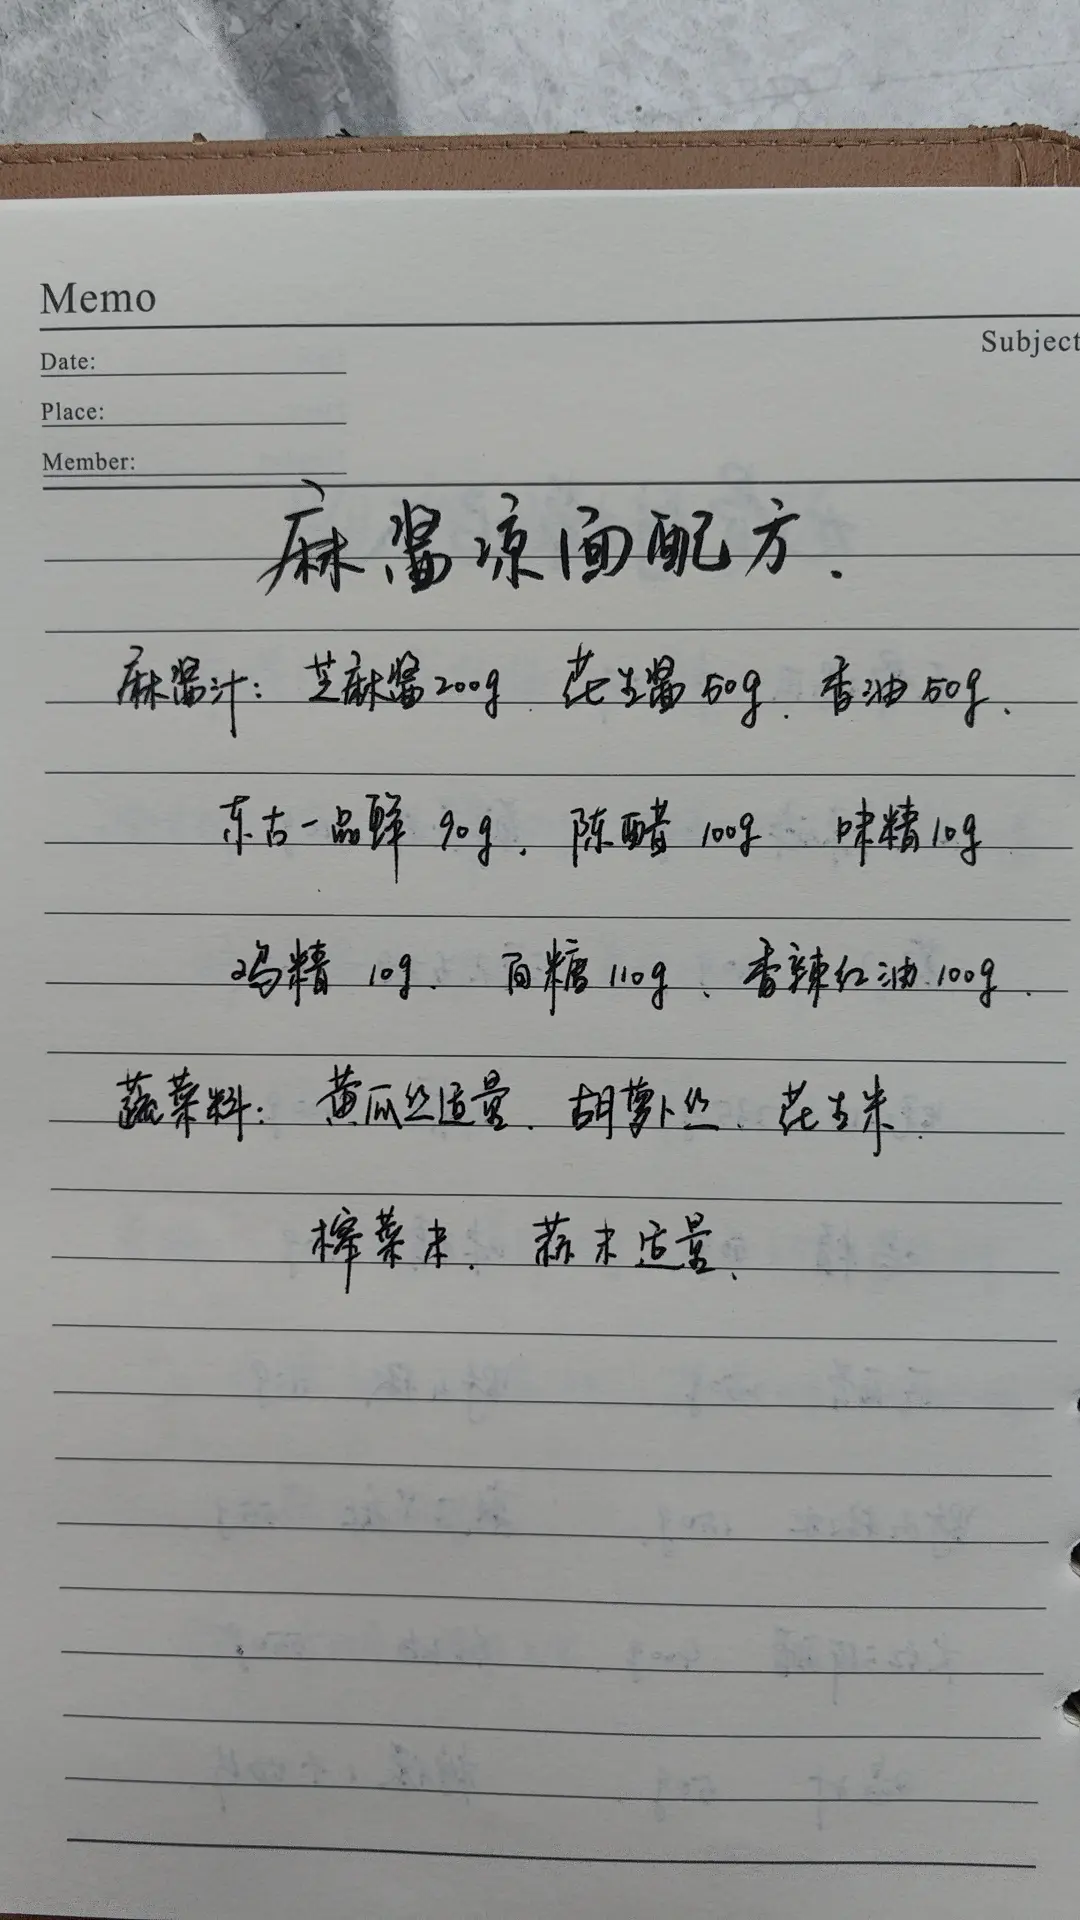 Memo
Subject
Date:
Place:
Member:
麻酱凉面配方.
麻酱汁: 芝麻酱200g 花生酱50g、香油50g、
东古一品鲜 90g、陈醋 100g 味精10g
鸡精 10g、白糖110g、香辣红油100g、
蔬菜料: 黄瓜丝适量、胡萝卜丝、花生米、
榨菜末、蒜末适量、